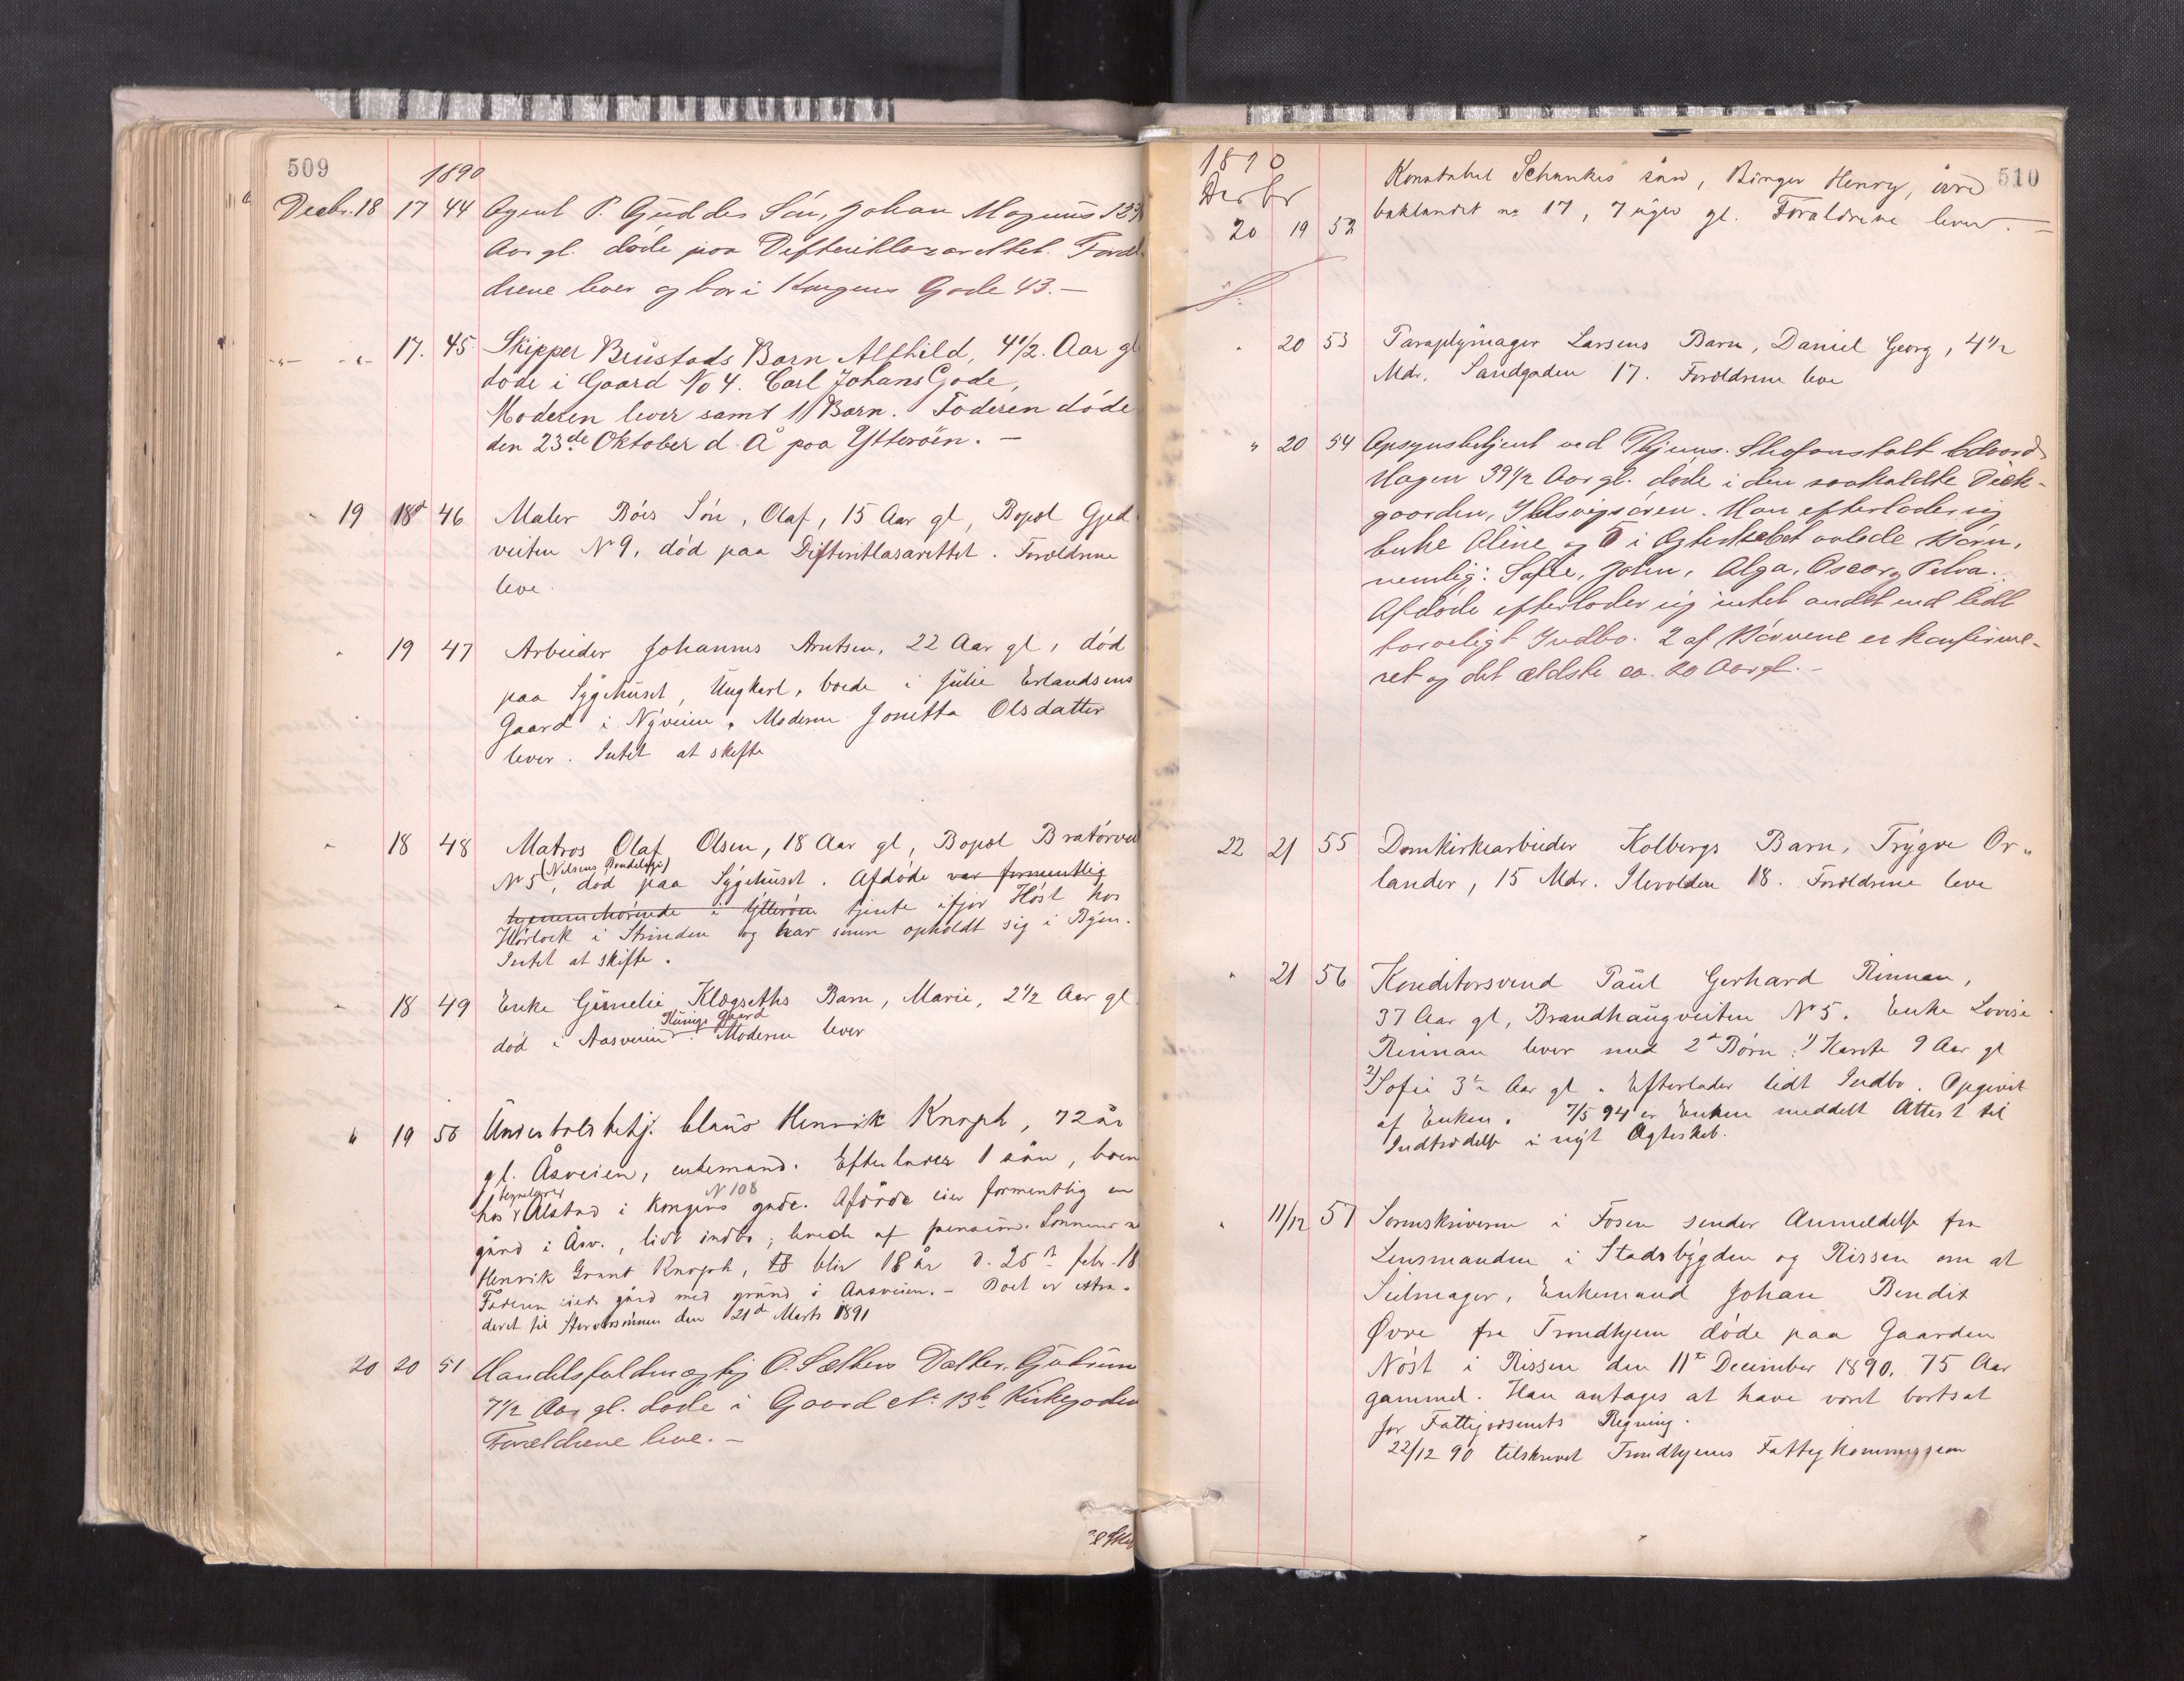 509
1890
Decbr. 18 17 44 Agent P. Guddes Sön, Johan Magnus
Aar gl. døde paa Difteritlazarettet. Foræl-
drene lever og bor i Kongens Gade 43. —
-"- -"- 17. 45. Skipper Brustads Barn Althild, 4 1/2. Aar gl
døde i Gaard No 4. Carl Johans Gade,
Moderen lever samt 11 Børn. Faderen døde
den 23de Oktober d. Å paa Ytterøen. —
" 19 18de 46 Maler Böes Sön, Olaf, 15 Aar gl, Bopæl Gjed
veiten No 9, död paa Difteritlasarettet. Forældrene
leve
" 19 47 Arbeider Johannes Arntsen, 22 Aar gl, död
paa Sygehuset, Ungkarl, boede i Julie Erlandsens
Gaard i Nyveien. Moderen Jonetta Olsdatter
lever. Intet at skifte
" 18 48 Matros Olaf Olsen, 18 Aar gl, Bopæl Bratörvei
(Nilsens Bondelogi)
No 5, död paa Sygehuset. Afdöde var formentlig
hjemmehörende i Ytteröen tjente ifjor Höst hos
i Strinden og har senere opholdt sig i Byen.
Intet at skifte.
" 18 49 Enke Gunelie Klægseths Barn, Marie, 2 1/2 Aar gl
Gaard
död i Aasveien. Moderen lever
" 19 50 Undertoldbetj. Claus Henrik Knoph, 72 år
gl. Åsveien, enkemand. Efterlader 1 sön, boen
No 108
hos Alstad i Kongens gade. Afdöde eier formentlig en
gård i Åsv., lidt indbo; levede af pension. Sönnens
Henrik Grant Knoph, bliv 18 år d. 25de febr. 18
Faderen eied gård med grund i Aasveien. — Boet er extra-
deret til den 21de Marts 1891
20 20 51 Handelsfuldmægtig O. Sæthers Datter, Gudrun
7 1/2 Aar gl. døde i Gaard No 13b Kirkegaden
Forældrene leve. —
1890
510
Decbr
20 19 52 Konstabel Schankes sön, Birger Henry, övre
baklandet no 17, 7 uger gl. Forældrene lever. —
" 20 53 Paraplymager Larsens Barn, Daniel Georg, 4 1/2
Mdr. Sandgaden 17. Forældrene leve
" 20 54 Opsynsbetjent ved Thjems. Strafanstalt Edvard
Hagen 39 1/2 Aar gl. døde i den saakaldte
gaarden, Ihlsvigsøren. Han efterlader sig
Enke Aline og 5 i Ægteskabet avlede Børn,
nemlig: Sofie, John, Alga, Oscar og Petra.
Afdøde efterlader sig intet andet end lidt
tarveligt Indbo. 2 af Børnene er konfirme-
ret og det ældste ca. 20 Aar gl. —
22 21 55 Domkirkearbeider Kolbergs Barn, Trygve Or-
lander, 15 Mdr. Ilevolden 18. Forældrene leve
" 21 56 Konditorsvend Paul Gerhard Rinnan,
37 Aar gl, Brandhaugveiten No 5. Enke Lovise
Rinnan lever med 2de Børn: 1) Karste 9 Aar gl
2) Sofie 3 1/2 Aar gl. Efterlader lidt Indbo. Opgivet
af Enken. 7/5 94 er Enken meddelt Attest til
Indtrædelse i nyt Ægteskab.
" 11/12 57 Sorenskriveren i Fosen sender Anmeldelse fra
Lensmanden i Stadsbygden og Rissen om at
Seilmager, Enkemand Johan Bendix
Øvre fra Trondhjem døde paa Gaarden
Nöst i Rissen den 11te December 1890, 75 Aar
gammel. Han antages at have været bortsat
for Fattigvæsenets Regning.
22/12 90 tilskrevet Trondhjems Fattigkommission